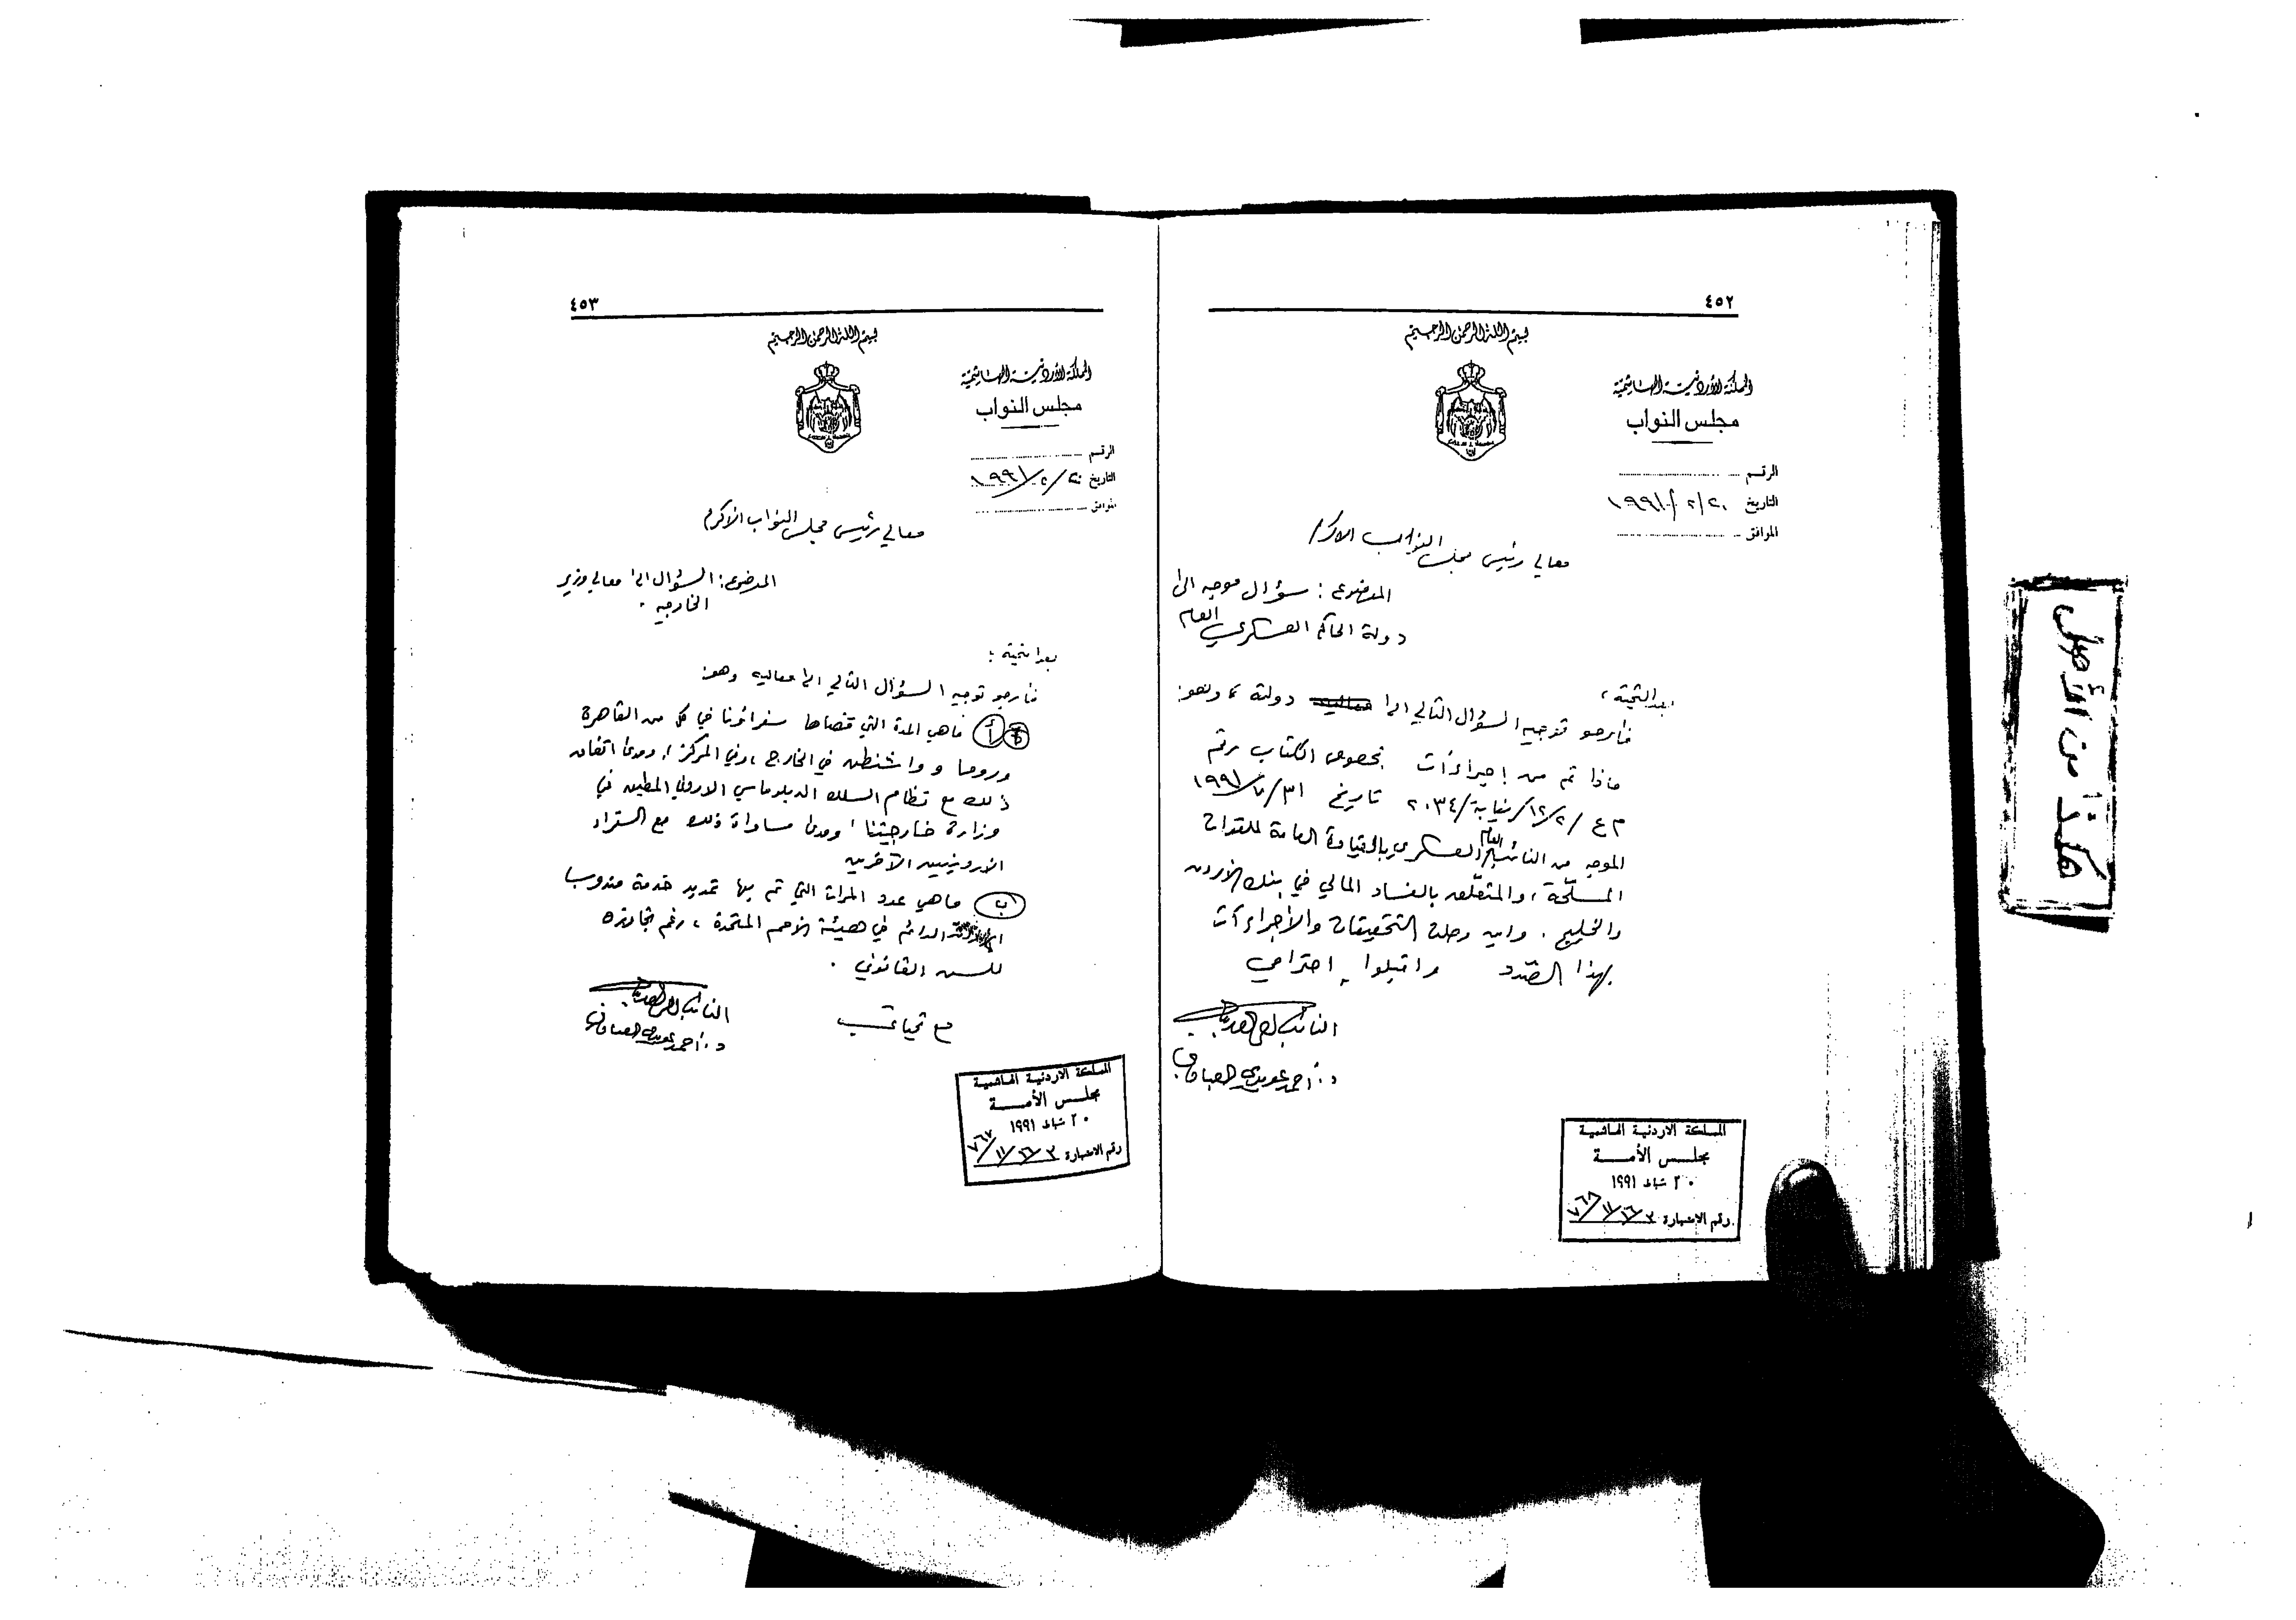 ٤٥٢
بسم الله الرحمن الرحيم
المملكة الأردنية الهاشمية
مجلس النواب
الرقم
التاريخ ١٩٩١/٢/٢٠
الموافق
معالي رئيس مجلس النواب الاكرم
الموضوع : سؤال موجه الى
دولة الحاكم العسكري العام
بعد التحية ،
فأرجو توجيه السؤال التالي الى دولته ، وهو:
ماذا تم من إجراءات بخصوص الكتاب رقم
م ع /١٢/٢/نيابة/٢٠٣٤ تاريخ ٣١/ /١٩٩١
الموجه من النائب العام العسكري بالقيادة العامة للقوات
المسلحة ، والمتعلق بالفساد المالي في بنك الأردن
والخليج . واين وصلت التحقيقات والأجراءآت
بهذا الصدد واقبلوا احترامي
النائب
د. أحمد عويدي العبادي
المملكة الاردنية الهاشمية
مجلس الأمة
٢٠ شباط ١٩٩١
رقم الاضبارة ٧٦٨/١١/٢٦/٣
٤٥٣
بسم الله الرحمن الرحيم
المملكة الأردنية الهاشمية
مجلس النواب
الرقم
التاريخ ١٩٩١/٢/٢٠
الموافق
معالي رئيس مجلس النواب الاكرم
الموضوع : السؤال الى معالي وزير
الخارجيه .
بعد التحية :
فأرجو توجيه السؤال التالي الى معاليه وهو:
أ ماهي المدة التي قضاها سفرائونا في كل من القاهرة
وروما وواشنطن في الخارج ، وفي المركز ، ومدى اتفاق
ذلك مع نظام السلك الدبلوماسي الاردني المطبق في
وزارة خارجيتنا ، ومدى مساواة ذلك مع السفراء
الاردنيين الآخرين
ب ماهي عدد المرات التي تم بها تمديد خدمة مندوبنا
الدائم في هيئة الأمم المتحدة ، رغم تجاوزه
للسن القانوني .
مع تحياتي
النائب
د. أحمد عويدي العبادي
المملكة الاردنية الهاشمية
مجلس الأمة
٢٠ شباط ١٩٩١
رقم الاضبارة ٧٦٧/١١/٢٦/٣
هكذا من الأصل